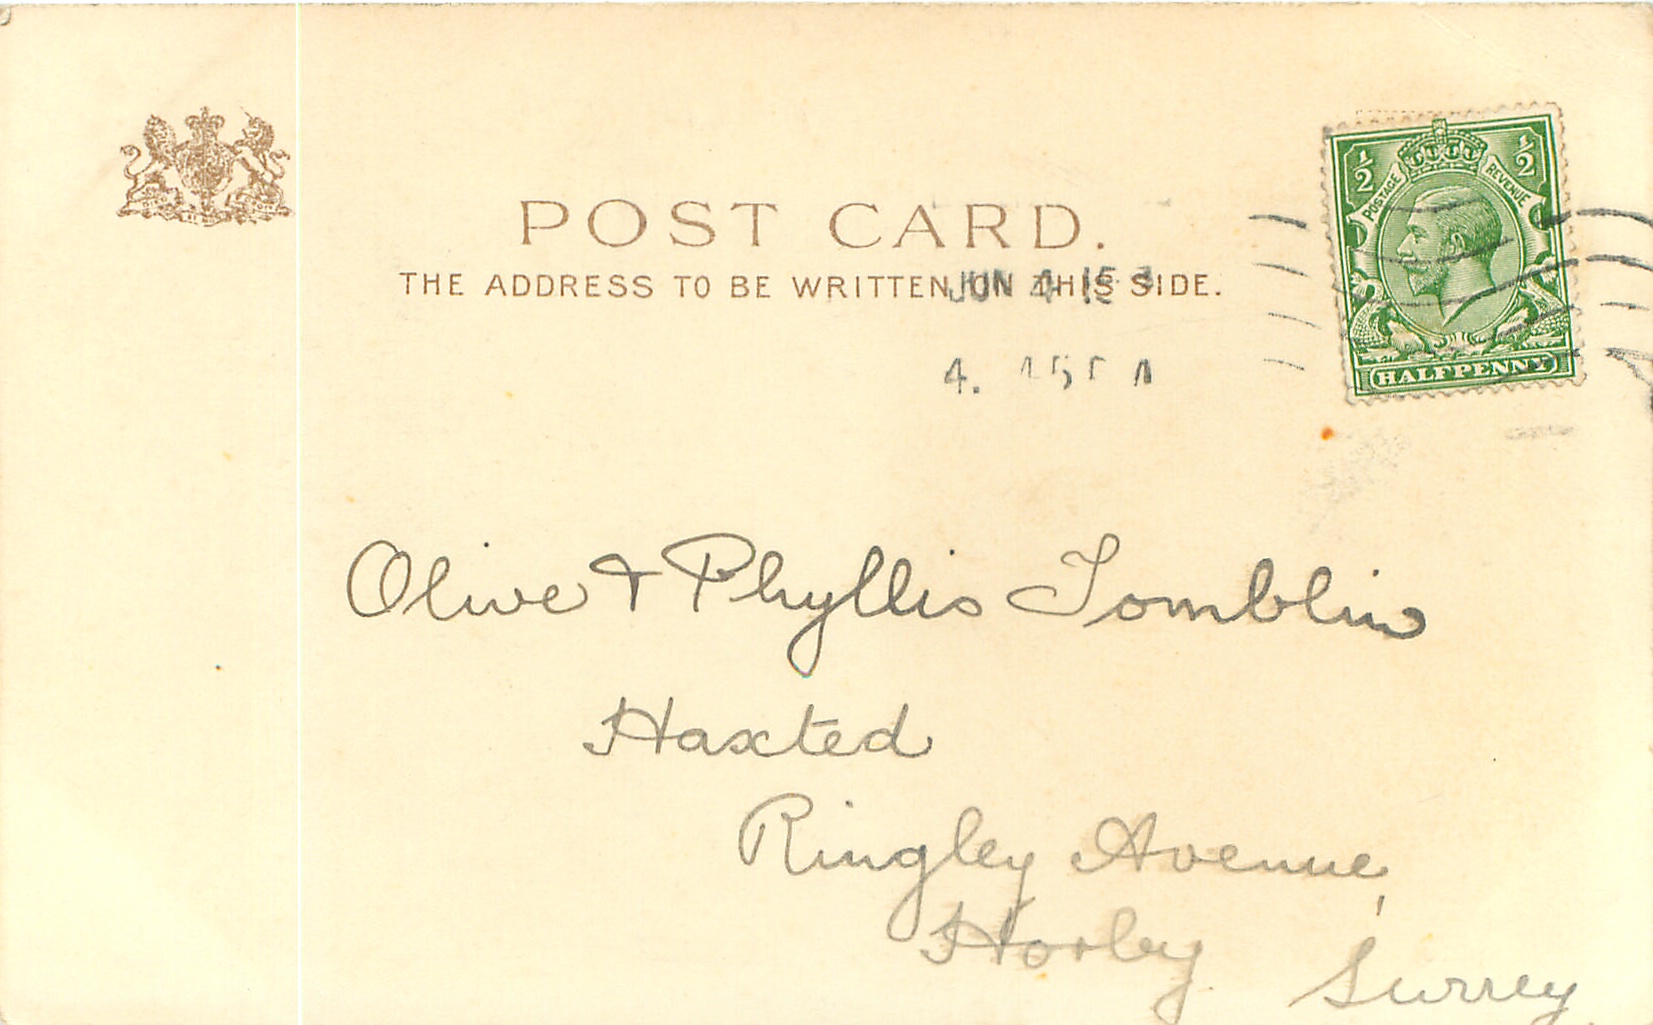 POST CARD.
THE ADDRESS TO BE WRITTEN ON THIS SIDE.
JUN 4 15
4.
½ ½
POSTAGE REVENUE
HALFPENNY
Olive & Phyllis Tomblin
Haxted
Ringley Avenue,
Horley
Surrey